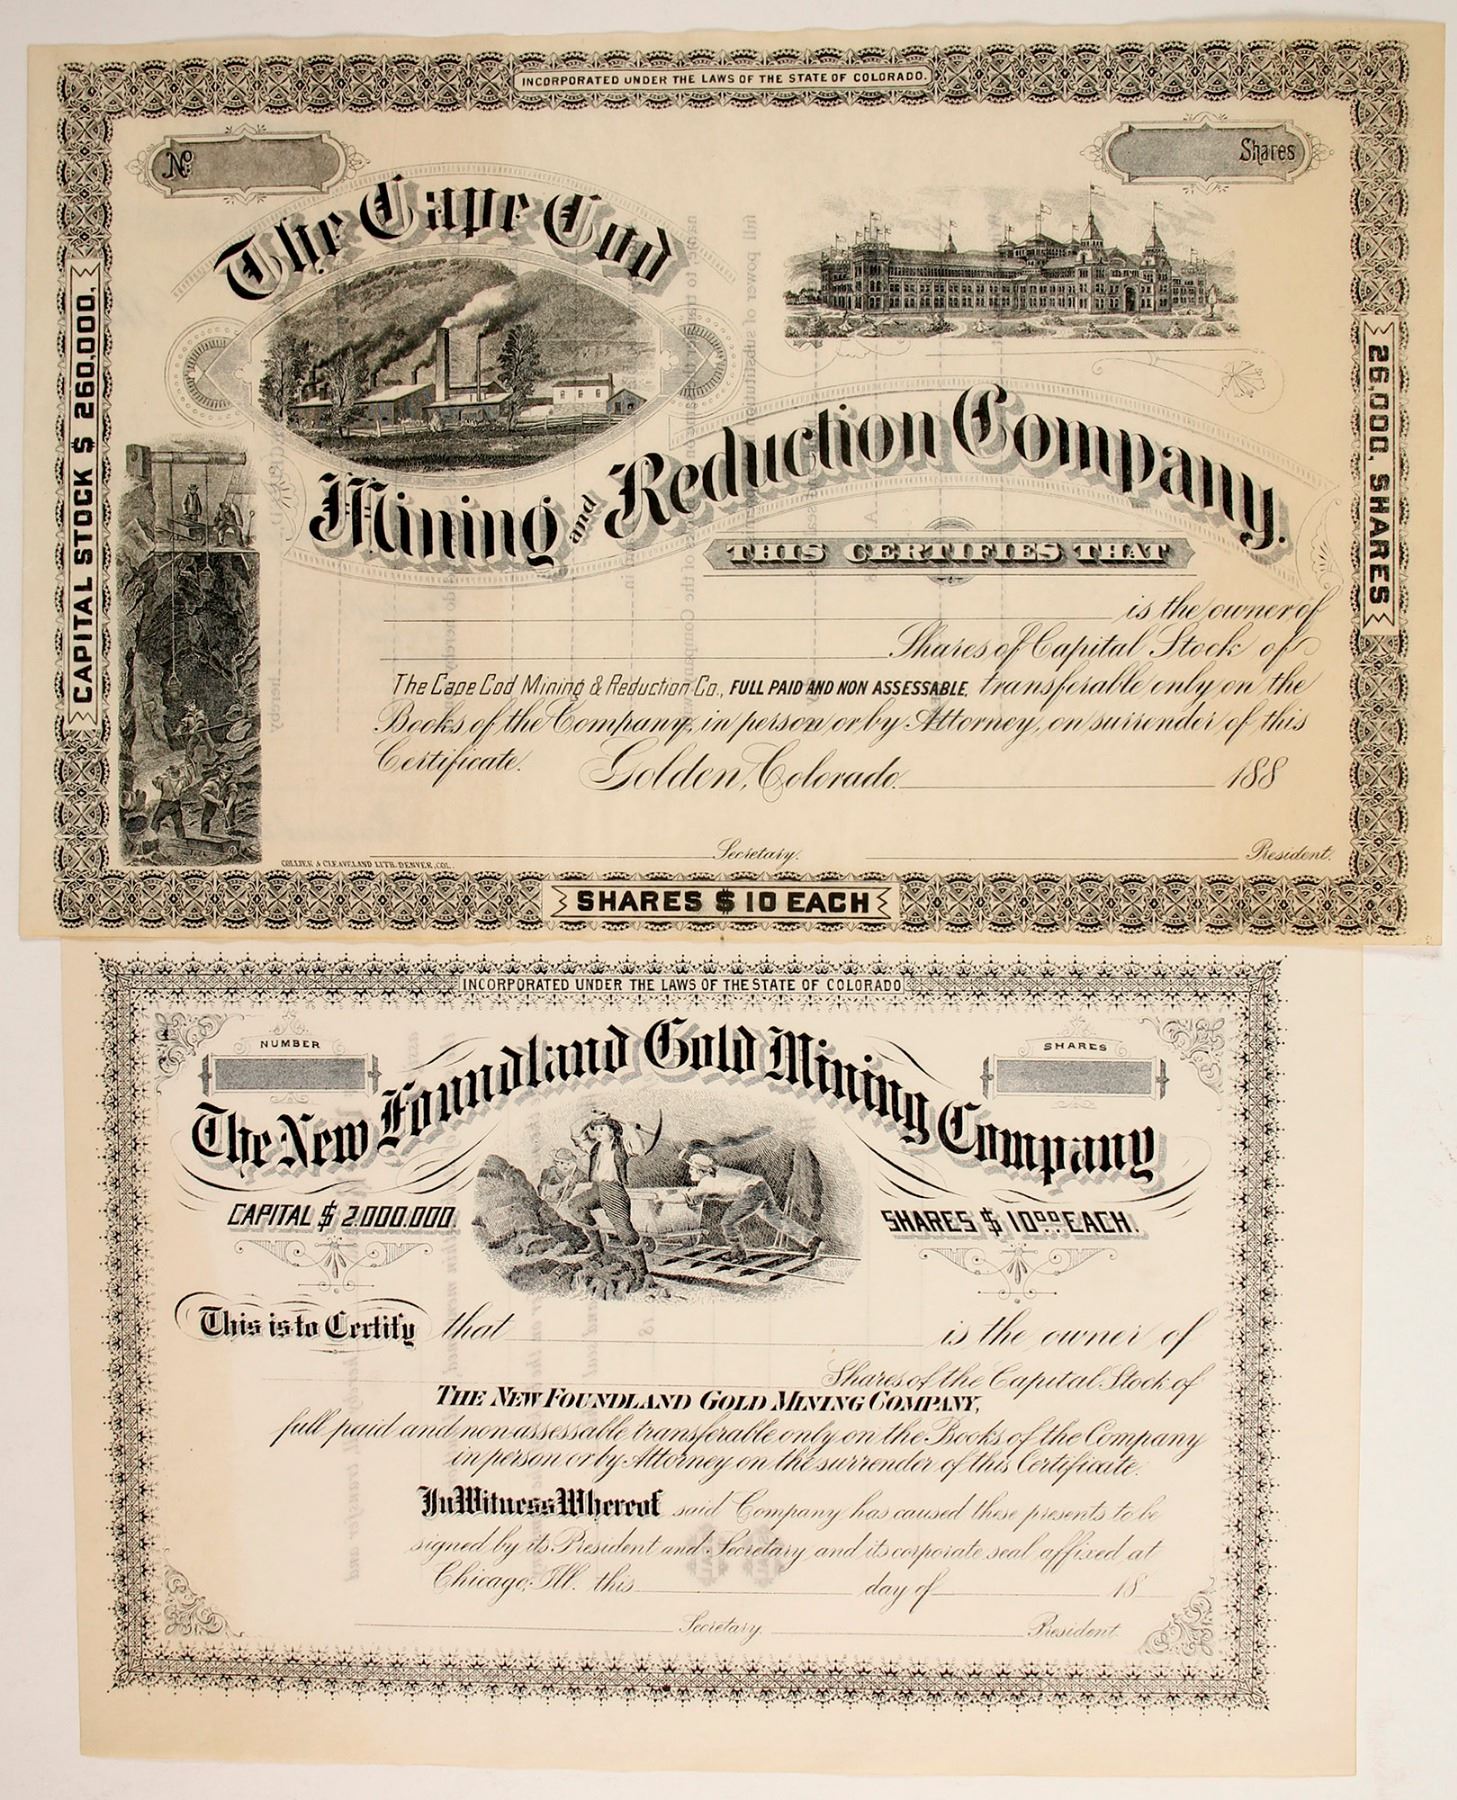 INCORPORATED UNDER THE LAWS OF THE STATE OF COLORADO.
No
Shares
The Cape Cod
Mining and Reduction Company.
CAPITAL STOCK $ 260,000,
26,000, SHARES
THIS CERTIFIES THAT
is the owner of
Shares of Capital Stock of
The Cape Cod Mining & Reduction Co., FULL PAID AND NON ASSESSABLE, transferable only on the
Books of the Company, in person or by Attorney, on surrender of this
Certificate. Golden, Colorado. 188
Secretary. President.
COLLIER & CLEAVELAND LITH. DENVER, COL.
SHARES $ 10 EACH
INCORPORATED UNDER THE LAWS OF THE STATE OF COLORADO
NUMBER
SHARES
The New Foundland Gold Mining Company
CAPITAL $ 2.000.000.
SHARES $ 10 00 EACH.
This is to Certify that is the owner of
Shares of the Capital Stock of
THE NEW FOUNDLAND GOLD MINING COMPANY,
full paid and non assessable transferable only on the Books of the Company
in person or by Attorney on the surrender of this Certificate.
In Witness Whereof said Company has caused these presents to be
signed by its President and Secretary and its corporate seal affixed at
Chicago, Ill. this day of 18
Secretary. President.